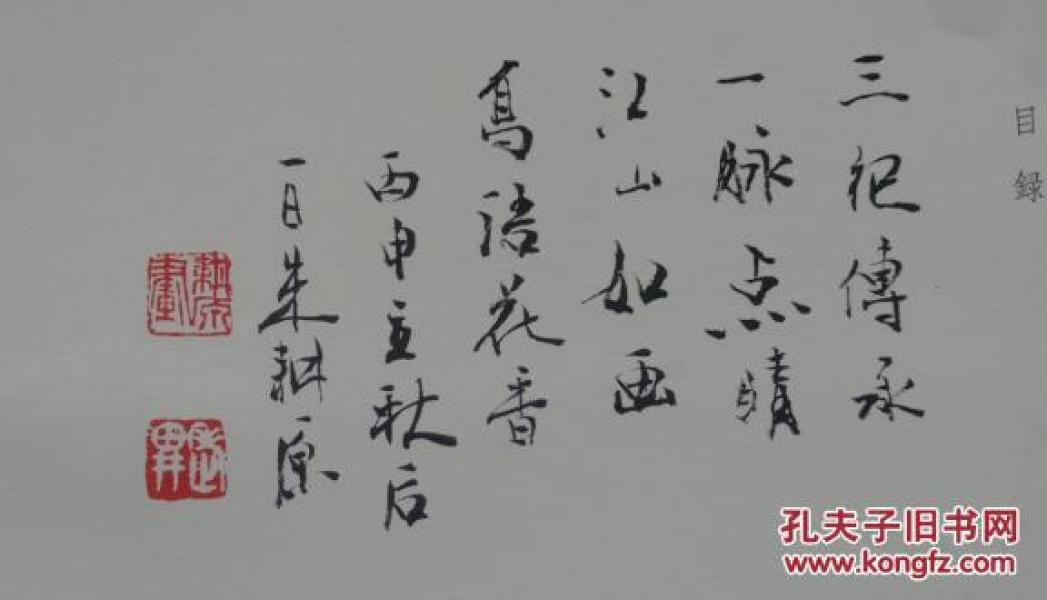 目录
三祀傳承
一脉点睛
江山如画
鳥语花香
丙申立秋后
一日朱耕原
孔夫子旧书网
www.kongfz.com